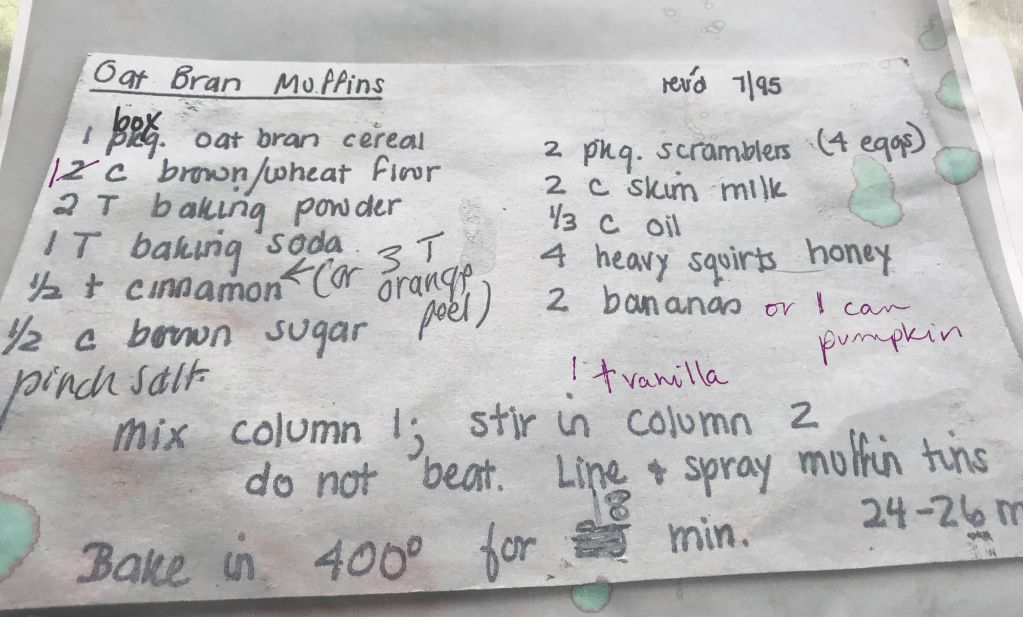 Oat Bran Muffins
rev'd 7/95
1 box oat bran cereal
1 c brown/wheat flour
2 T baking powder
1 T baking soda
1/2 t cinnamon ← (or 3 T
orange
peel)
1/2 c brown sugar
pinch salt.
2 pkg. scramblers (4 eggs)
2 c skim milk
1/3 c oil
4 heavy squirts honey
2 bananas or 1 can
pumpkin
1 t vanilla
mix column 1; stir in column 2
do not beat. Line & spray muffin tins
24-26 m
Bake in 400° for 18 min.